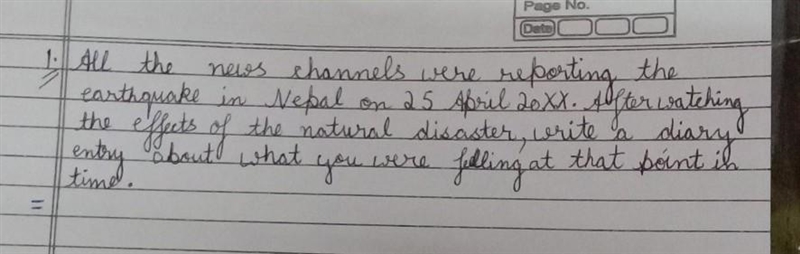 Page No.
Date
1. All the news channels were reporting the
earthquake in Nepal on 25 April 20XX. After watching
the effects of the natural disaster, write a diary
entry about what you were felling at that point in
time.
=